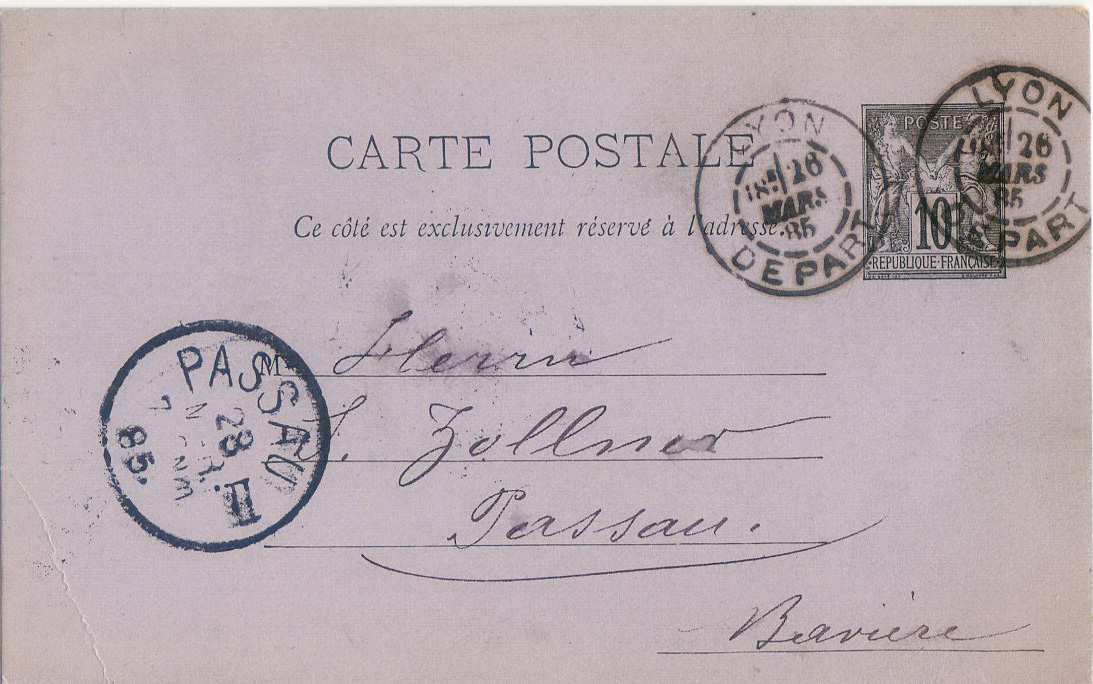 CARTE POSTALE
Ce côté est exclusivement réservé à l'adresse.
LYON
26
MARS
85
DEPART
POSTE
10
REPUBLIQUE FRANÇAISE
LYON
26
MARS
85
DEPART
PASSAU II
28
7 NM
85.
M Herrn
J. Zollner
Passau.
Bavière